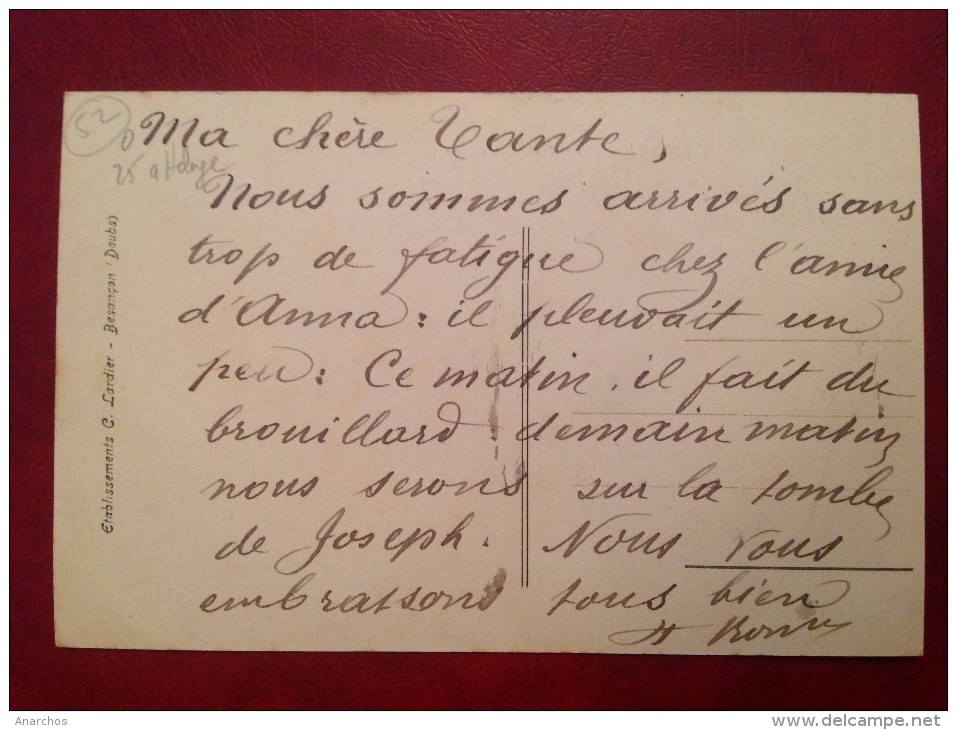 52
25 attelage
Ma chère Tante,
Nous sommes arrivés sans
trop de fatigue chez l'amie
d'Anna : il pleuvait un
peu : Ce matin il fait du
brouillard : demain matin
nous serons sur la tombe
de Joseph. Nous vous
embrassons tous bien
Etablissements C. Lardier - Besançon (Doubs)
Anarchos
www.delcampe.net